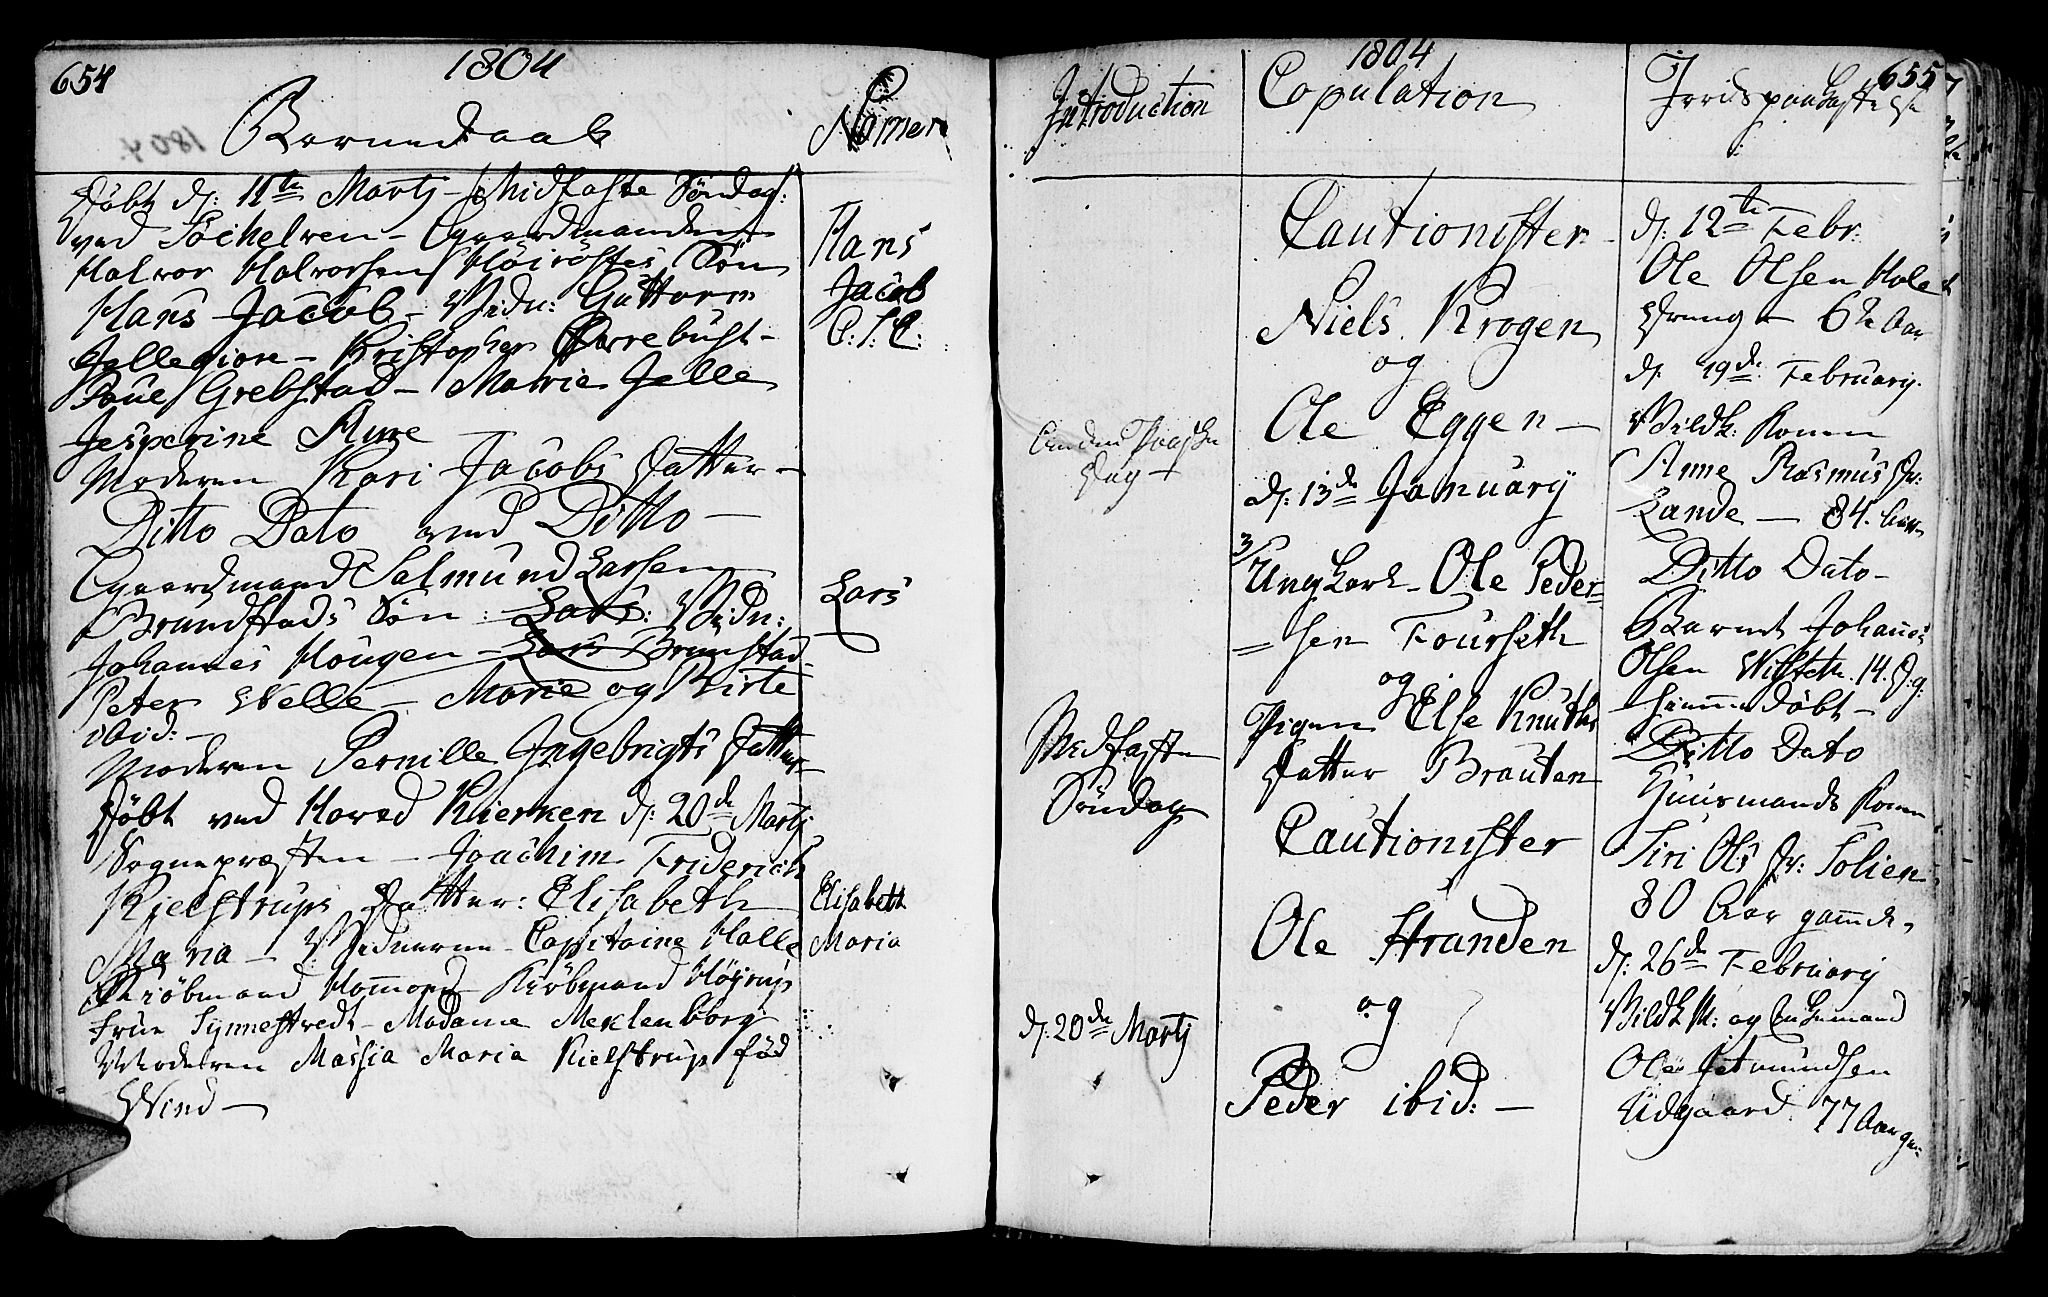 654
1804
Barnedaab
Nomen
Döbt d: 11te Martj Midfaste Söndag:
ved Sochelven Gaardmanden
Halvor Halvorsen Höiröstes Sön
Hans Jacob Vidn: Guttorm
Jellegiore Kristopher Orrebust
Poul Grebstad Marie Jelle
Jesperine Aure
Moderen Kari Jacobs Datter
Ditto Dato ved Ditto
Gaardmand Salmund Larsen
Brunstads Sön: Lars: Vidn:
Johannes Hougen Lars Brunstad
Peter Velle Marie og Birte
ibid:
Moderen Pernille Ingebrigts Datter
Döbt ved Hoved Kierken d: 20de Martj
Sognepræsten Joachim Friderich
Kielstrups Datter: Elisabeth
Maria Vidnerne Capitaine Halle
Kiöbmand Hammond Kiöbmand Höyrup
Frue Synnestvedt Madame Meklenborg
Moderen Massia Maria Kielstrup föd
Wind
Hans
Jacob
Lars
Elisabeth
Maria
Introduction
Anden Paaske
Dag
Midfaste
Söndag
d: 20de Martj
1804
Copulation
Cautionister
Niels Krogen
og
Ole Eggen
d: 13de January
3/ Ung Karl Ole Peder=
=sen Fourseth
og
Pigen Else Knuths
Datter Brauten
Cautionister
Ole Stranden
og
Peder ibid:
655
Jordspaakastelse
d: 12te Febr:
Ole Olsen Hole
62 Aar
d: 19de February
Vildh: Konen
Anne Rasmus Dr:
Lande 84. Aar
Ditto Dato
Barnet Johanes
Olsen 14. D. g:
hiemmedöbt
Ditto Dato
Huusmands Konen
Siri Ols Dr: Solien
80 Aar gamel,
d: 26de February
Vildh M: og Enkemand
Ole Jetmundsen
Udgaard 77 Aar gl